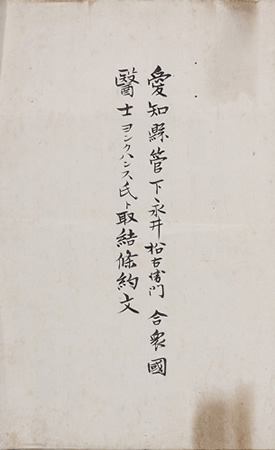 愛知縣管下永井松右衛門合衆國
醫士ヨンクハンス氏ト取結條約文